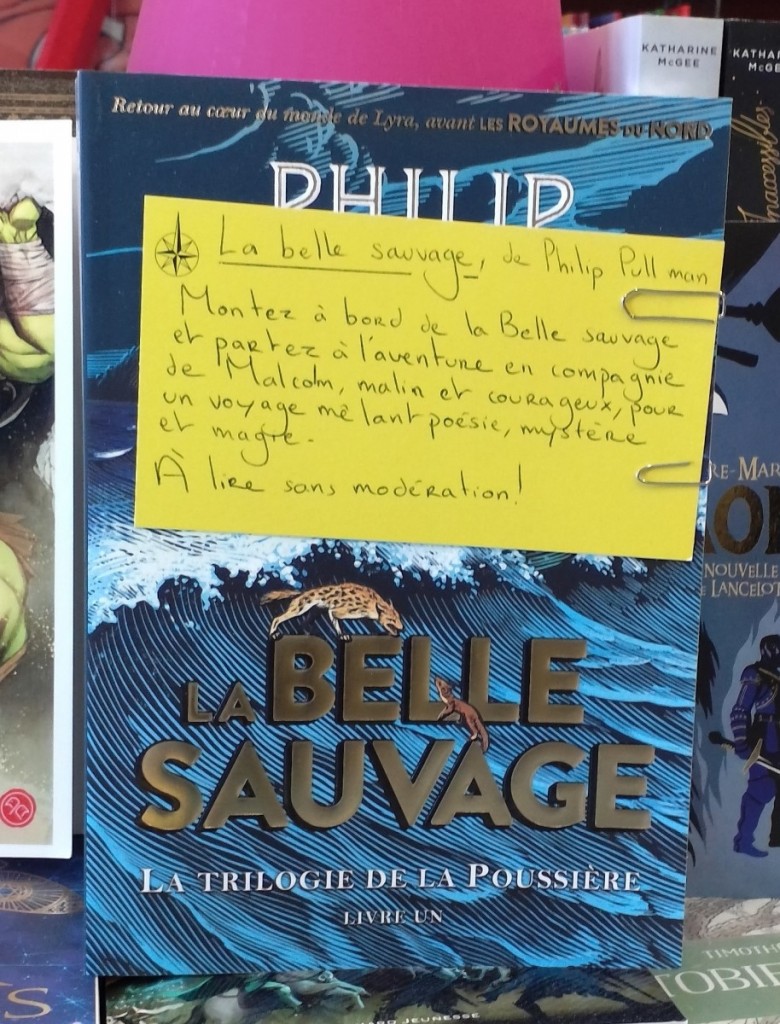 KATHARINE
McGEE
KATHA
McGE
Inaccessibles
Retour au cœur du monde de Lyra, avant LES ROYAUMES DU NORD
PHILIP
La belle sauvage, de Philip Pullman
Montez à bord de la Belle sauvage
et partez à l'aventure en compagnie
de Malcolm, malin et courageux, pour
un voyage mêlant poésie, mystère
et magie.
À lire sans modération!
RE-MAR
NOUVELLE
E LANCELOT
LA BELLE
SAUVAGE
LA TRILOGIE DE LA POUSSIÈRE
LIVRE UN
TIMOTH
TOBIE
TS
ARD JEUNESSE